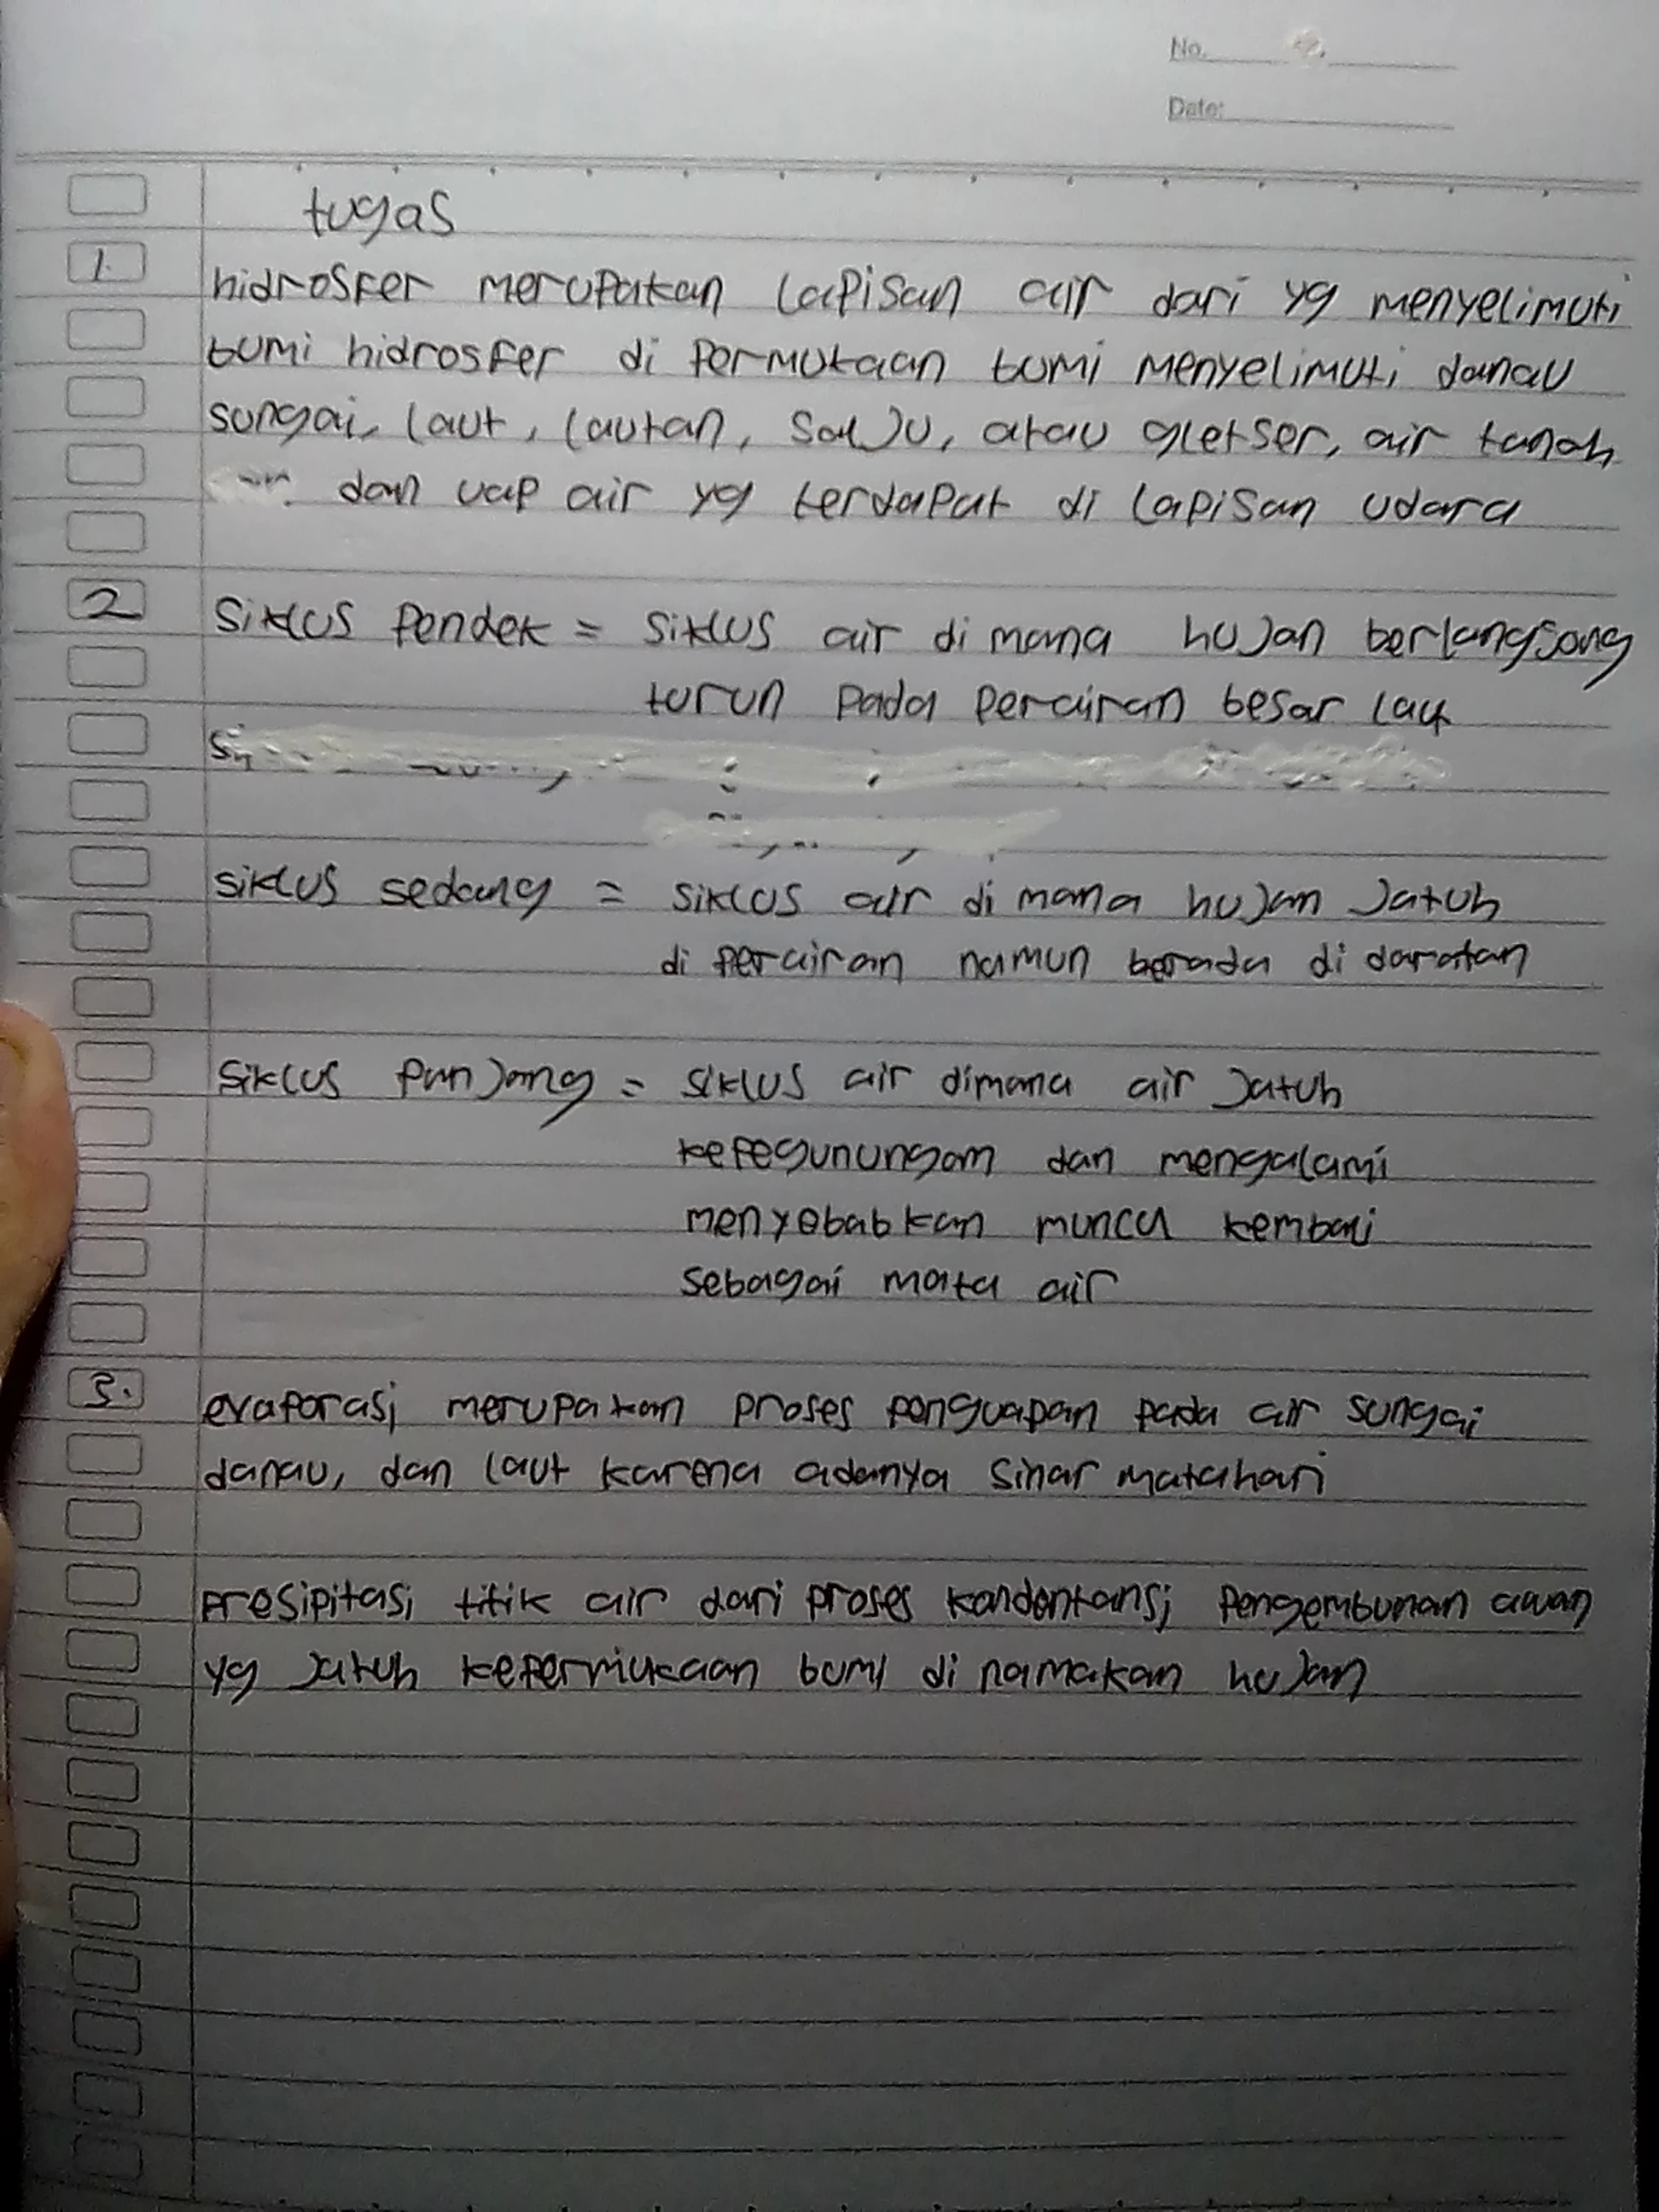 No.
Date:
tugas
1.
hidrosfer merupakan lapisan air dari yg menyelimuti
bumi hidrosfer di permukaan bumi menyelimuti danau
sungai, laut, lautan, salju, atau gletser, air tanah
dan uap air yg terdapat di lapisan udara
2 siklus pendek = siklus air di mana hujan berlangsong
turun pada perairan besar laut
siklus sedang = siklus air di mana hujan jatuh
di perairan namun berada di daratan
siklus panjang = siklus air dimana air jatuh
kepegunungan dan mengalami
menyebabkan muncul kembali
sebagai mata air
3. evaporasi merupakan proses penguapan pada air sungai
danau, dan laut karena adanya sinar matahari
presipitasi titik air dari proses kondontansi pengembunan awan
yg jatuh kepermukaan bumi di namakan hujan